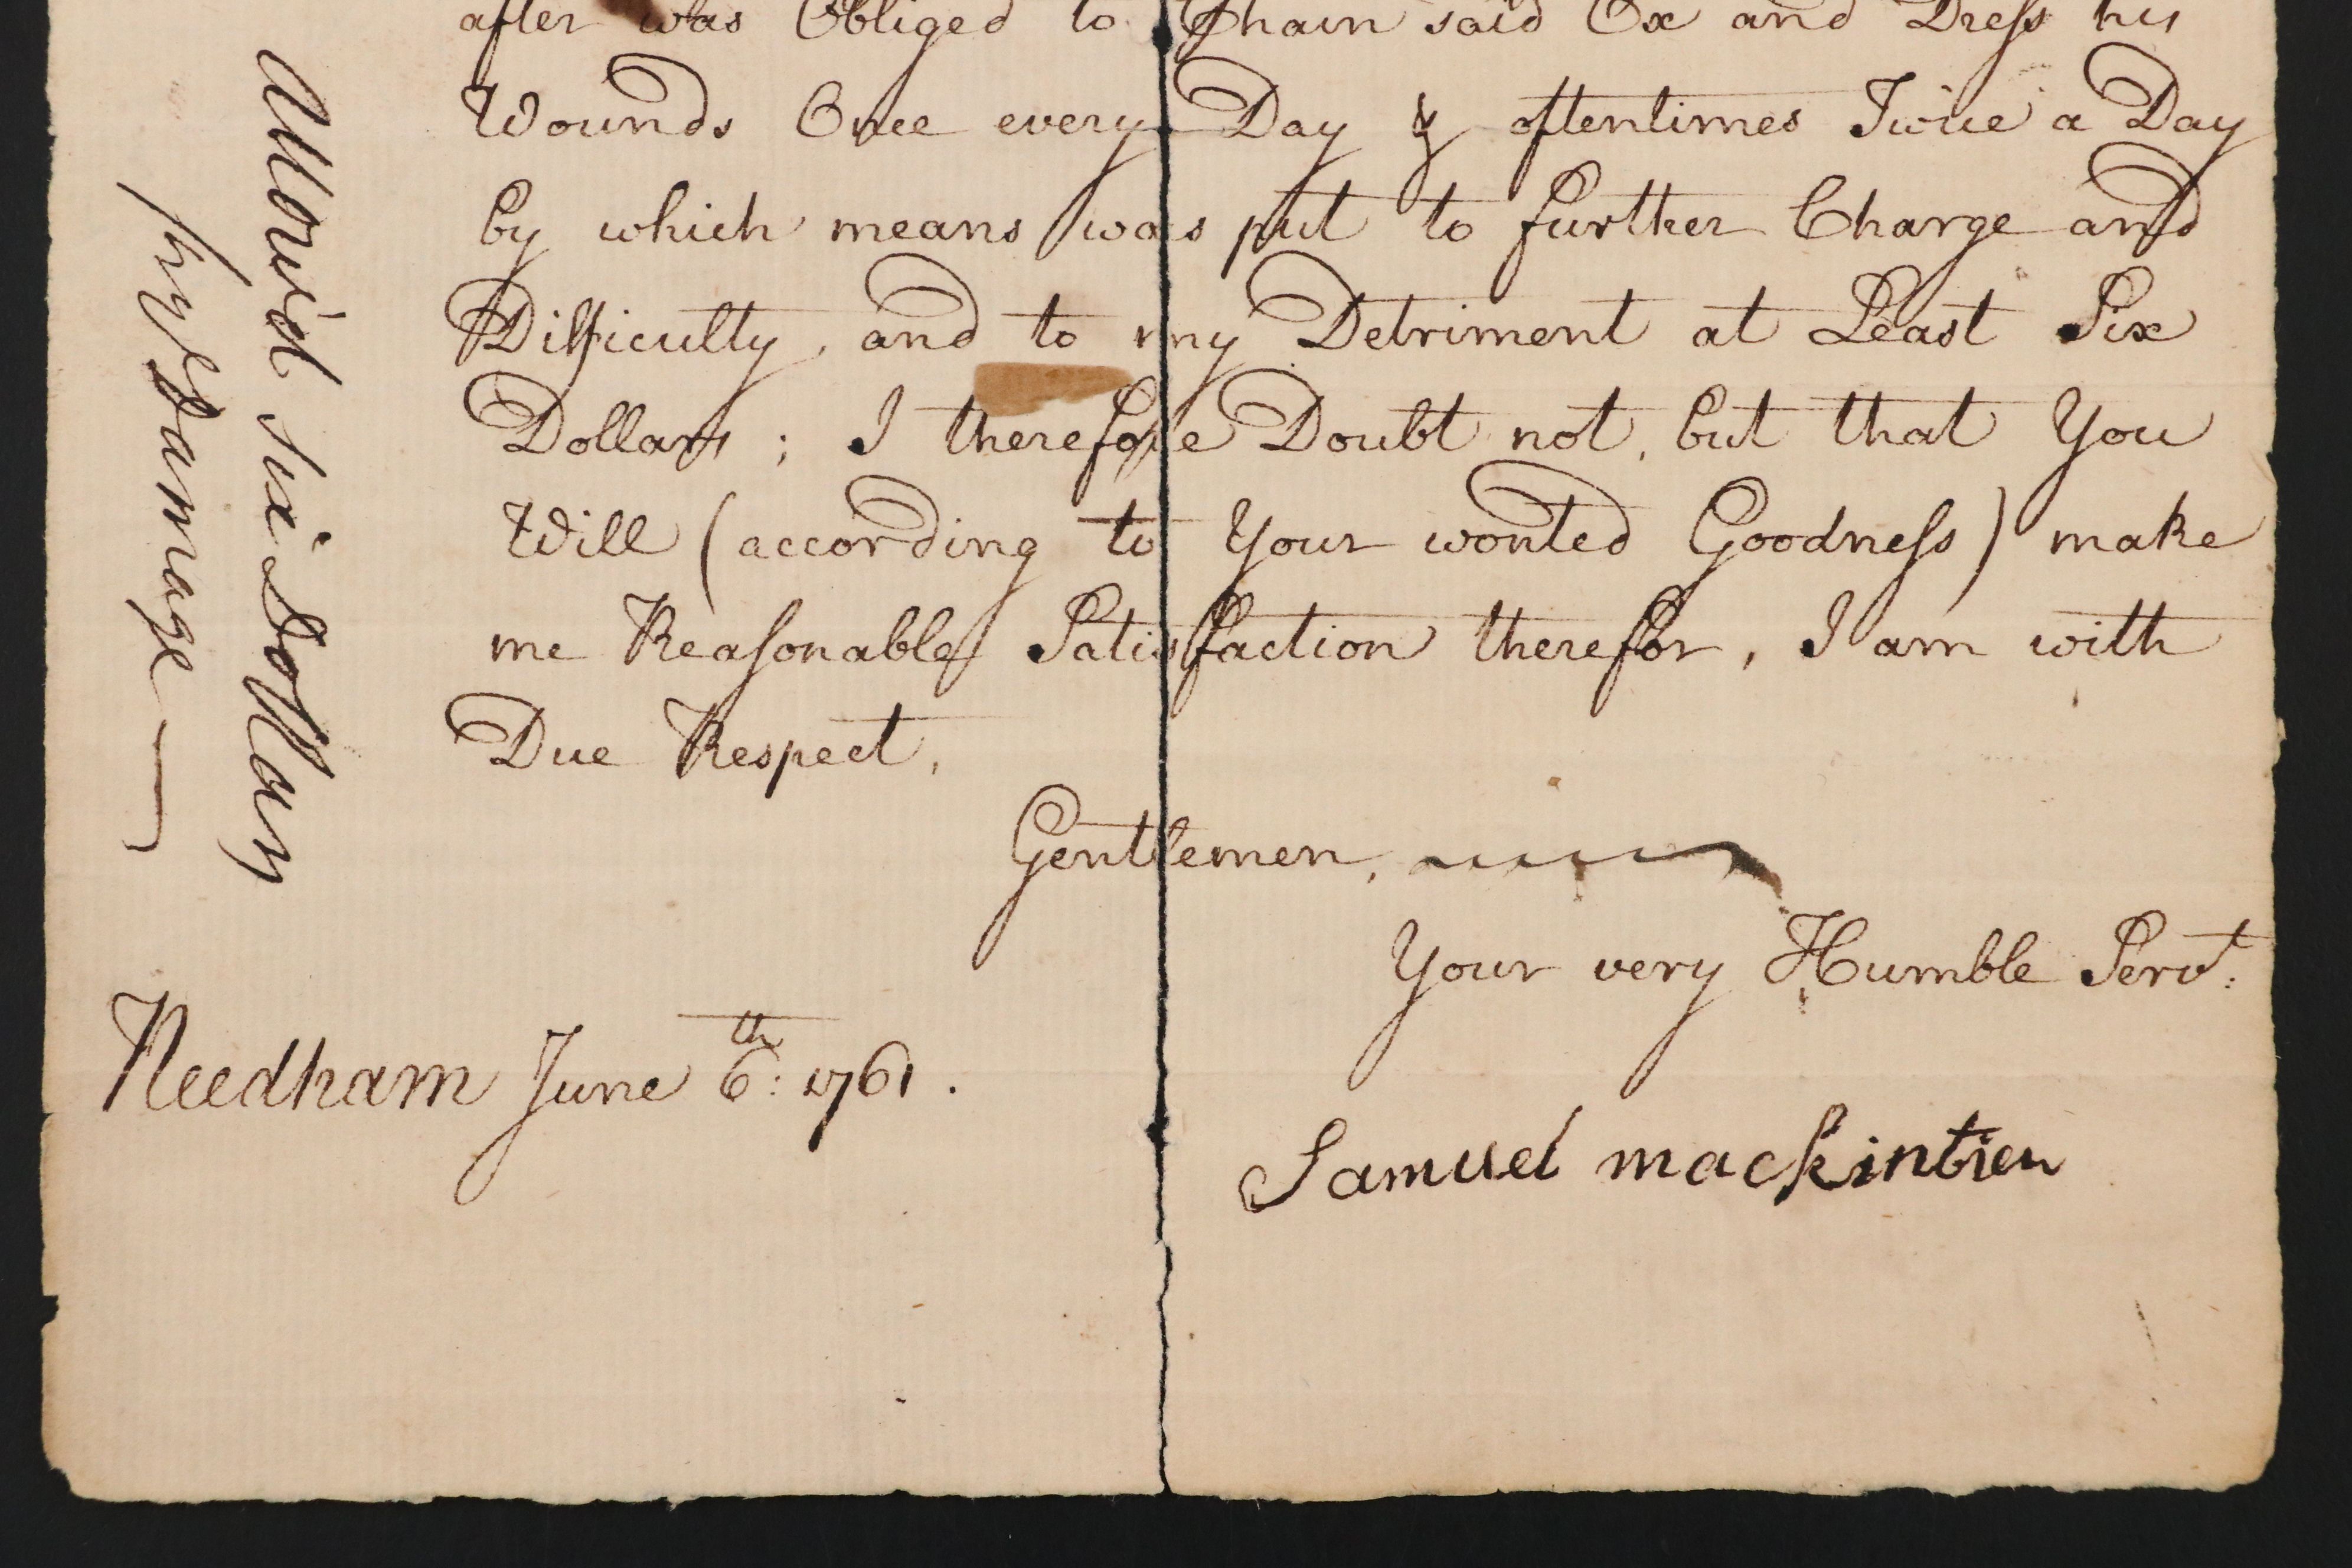 after was Obliged to Chain said Ox and Dress his
Wounds Once every Day & oftentimes Twice a Day
by which means was put to further Charge and
Difficulty, and to my Detriment at Least Six
Dollars; I therefore Doubt not, but that You
Will (according to Your wonted Goodness) make
me Reasonable Satisfaction therefor, I am with
Due Respect,
Gentlemen,
Your very Humble Servt:
Needham June 6th: 1761.
Samuel mackintier
Allow'd six Dollars
damage